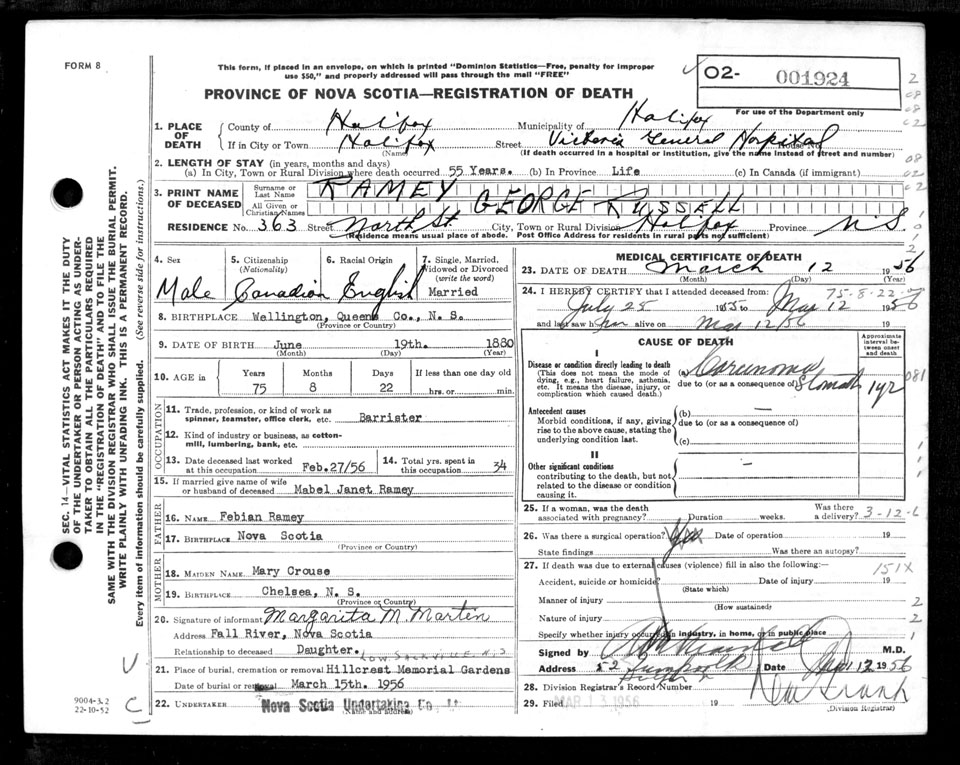 FORM 8
This form, if placed in an envelope, on which is printed "Dominion Statistics—Free, penalty for improper
use $50," and properly addressed will pass through the mail "FREE"
PROVINCE OF NOVA SCOTIA—REGISTRATION OF DEATH
02- 001924
For use of the Department only
1. PLACE OF DEATH
County of Halifax Municipality of Halifax
If in City or Town Halifax Street Victoria General Hospital House No.
(Name) (If death occurred in a hospital or institution, give the name instead of street and number)
2. LENGTH OF STAY (in years, months and days)
(a) In City, Town or Rural Division where death occurred 55 Years. (b) In Province Life (c) In Canada (if immigrant)
3. PRINT NAME OF DECEASED
Surname or Last Name RAMEY
All Given or Christian Names GEORGE RUSSELL
RESIDENCE No. 363 Street North St. City, Town or Rural Division Halifax Province N.S.
(Residence means usual place of abode. Post Office Address for residents in rural parts not sufficient)
4. Sex
Male
5. Citizenship
(Nationality)
Canadian
6. Racial Origin
English
7. Single, Married,
Widowed or Divorced
(write the word)
Married
8. BIRTHPLACE Wellington, Queens Co., N. S.
(Province or Country)
9. DATE OF BIRTH June 19th. 1880
(Month) (Day) (Year)
10. AGE in
Years Months Days If less than one day old
75 8 22 hrs. or min.
OCCUPATION
11. Trade, profession, or kind of work as
spinner, teamster, office clerk, etc. Barrister
12. Kind of industry or business, as cotton-
mill, lumbering, bank, etc.
13. Date deceased last worked
at this occupation Feb.27/56
14. Total yrs. spent in
this occupation 34
15. If married give name of wife
or husband of deceased Mabel Janet Ramey
FATHER
16. NAME Febian Ramey
17. BIRTHPLACE Nova Scotia
(Province or Country)
MOTHER
18. MAIDEN NAME Mary Crouse
19. BIRTHPLACE Chelsea, N. S.
(Province or Country)
20. Signature of informant Margarita M. Martin
Address Fall River, Nova Scotia
Relationship to deceased Daughter.
LOW SACKVILLE N.S
21. Place of burial, cremation or removal Hillcrest Memorial Gardens
Date of burial or removal March 15th. 1956
22. UNDERTAKER Nova Scotia Undertaking Co.
(Name and address)
MEDICAL CERTIFICATE OF DEATH
23. DATE OF DEATH March 12 1956
(Month) (Day) (Year)
75-8-22
24. I HEREBY CERTIFY that I attended deceased from:
July 25 1955 to Mar 12 1956
and last saw him alive on Mar 12/56 19
CAUSE OF DEATH
Approximate
interval be-
tween onset
and death
I
Disease or condition directly leading to death
(This does not mean the mode of
dying, e.g., heart failure, asthenia,
etc. It means the disease, injury, or
complication which caused death.)
(a) Carcinoma
due to (or as a consequence of) Stomach 1yr
Antecedent causes
Morbid conditions, if any, giving
rise to the above cause, stating the
underlying condition last.
(b) —
due to (or as a consequence of)
(c)
II
Other significant conditions
contributing to the death, but not
related to the disease or condition
causing it.
25. If a woman, was the death
associated with pregnancy? Duration weeks. Was there
a delivery?
3-12-6
26. Was there a surgical operation? Date of operation 19
State findings Was there an autopsy?
27. If death was due to external causes (violence) fill in also the following:
151X
Accident, suicide or homicide? Date of injury 19
(State which)
Manner of injury
(How sustained)
Nature of injury
Specify whether injury occurred in industry, in home, or in public place
Signed by M.D.
Address Date Mar 12 1956
28. Division Registrar's Record Number
29. Filed MAR 13 1956 19
(Division Registrar)
SEC. 14—VITAL STATISTICS ACT MAKES IT THE DUTY
OF THE UNDERTAKER OR PERSON ACTING AS UNDER-
TAKER TO OBTAIN ALL THE PARTICULARS REQUIRED
IN THE "REGISTRATION OF DEATH" AND TO FILE THE
SAME WITH THE DIVISION REGISTRAR WHO SHALL ISSUE THE BURIAL PERMIT.
WRITE PLAINLY WITH UNFADING INK. THIS IS A PERMANENT RECORD.
Every item of information should be carefully supplied. (See reverse side for instructions.)
9004-3.2
22-10-52